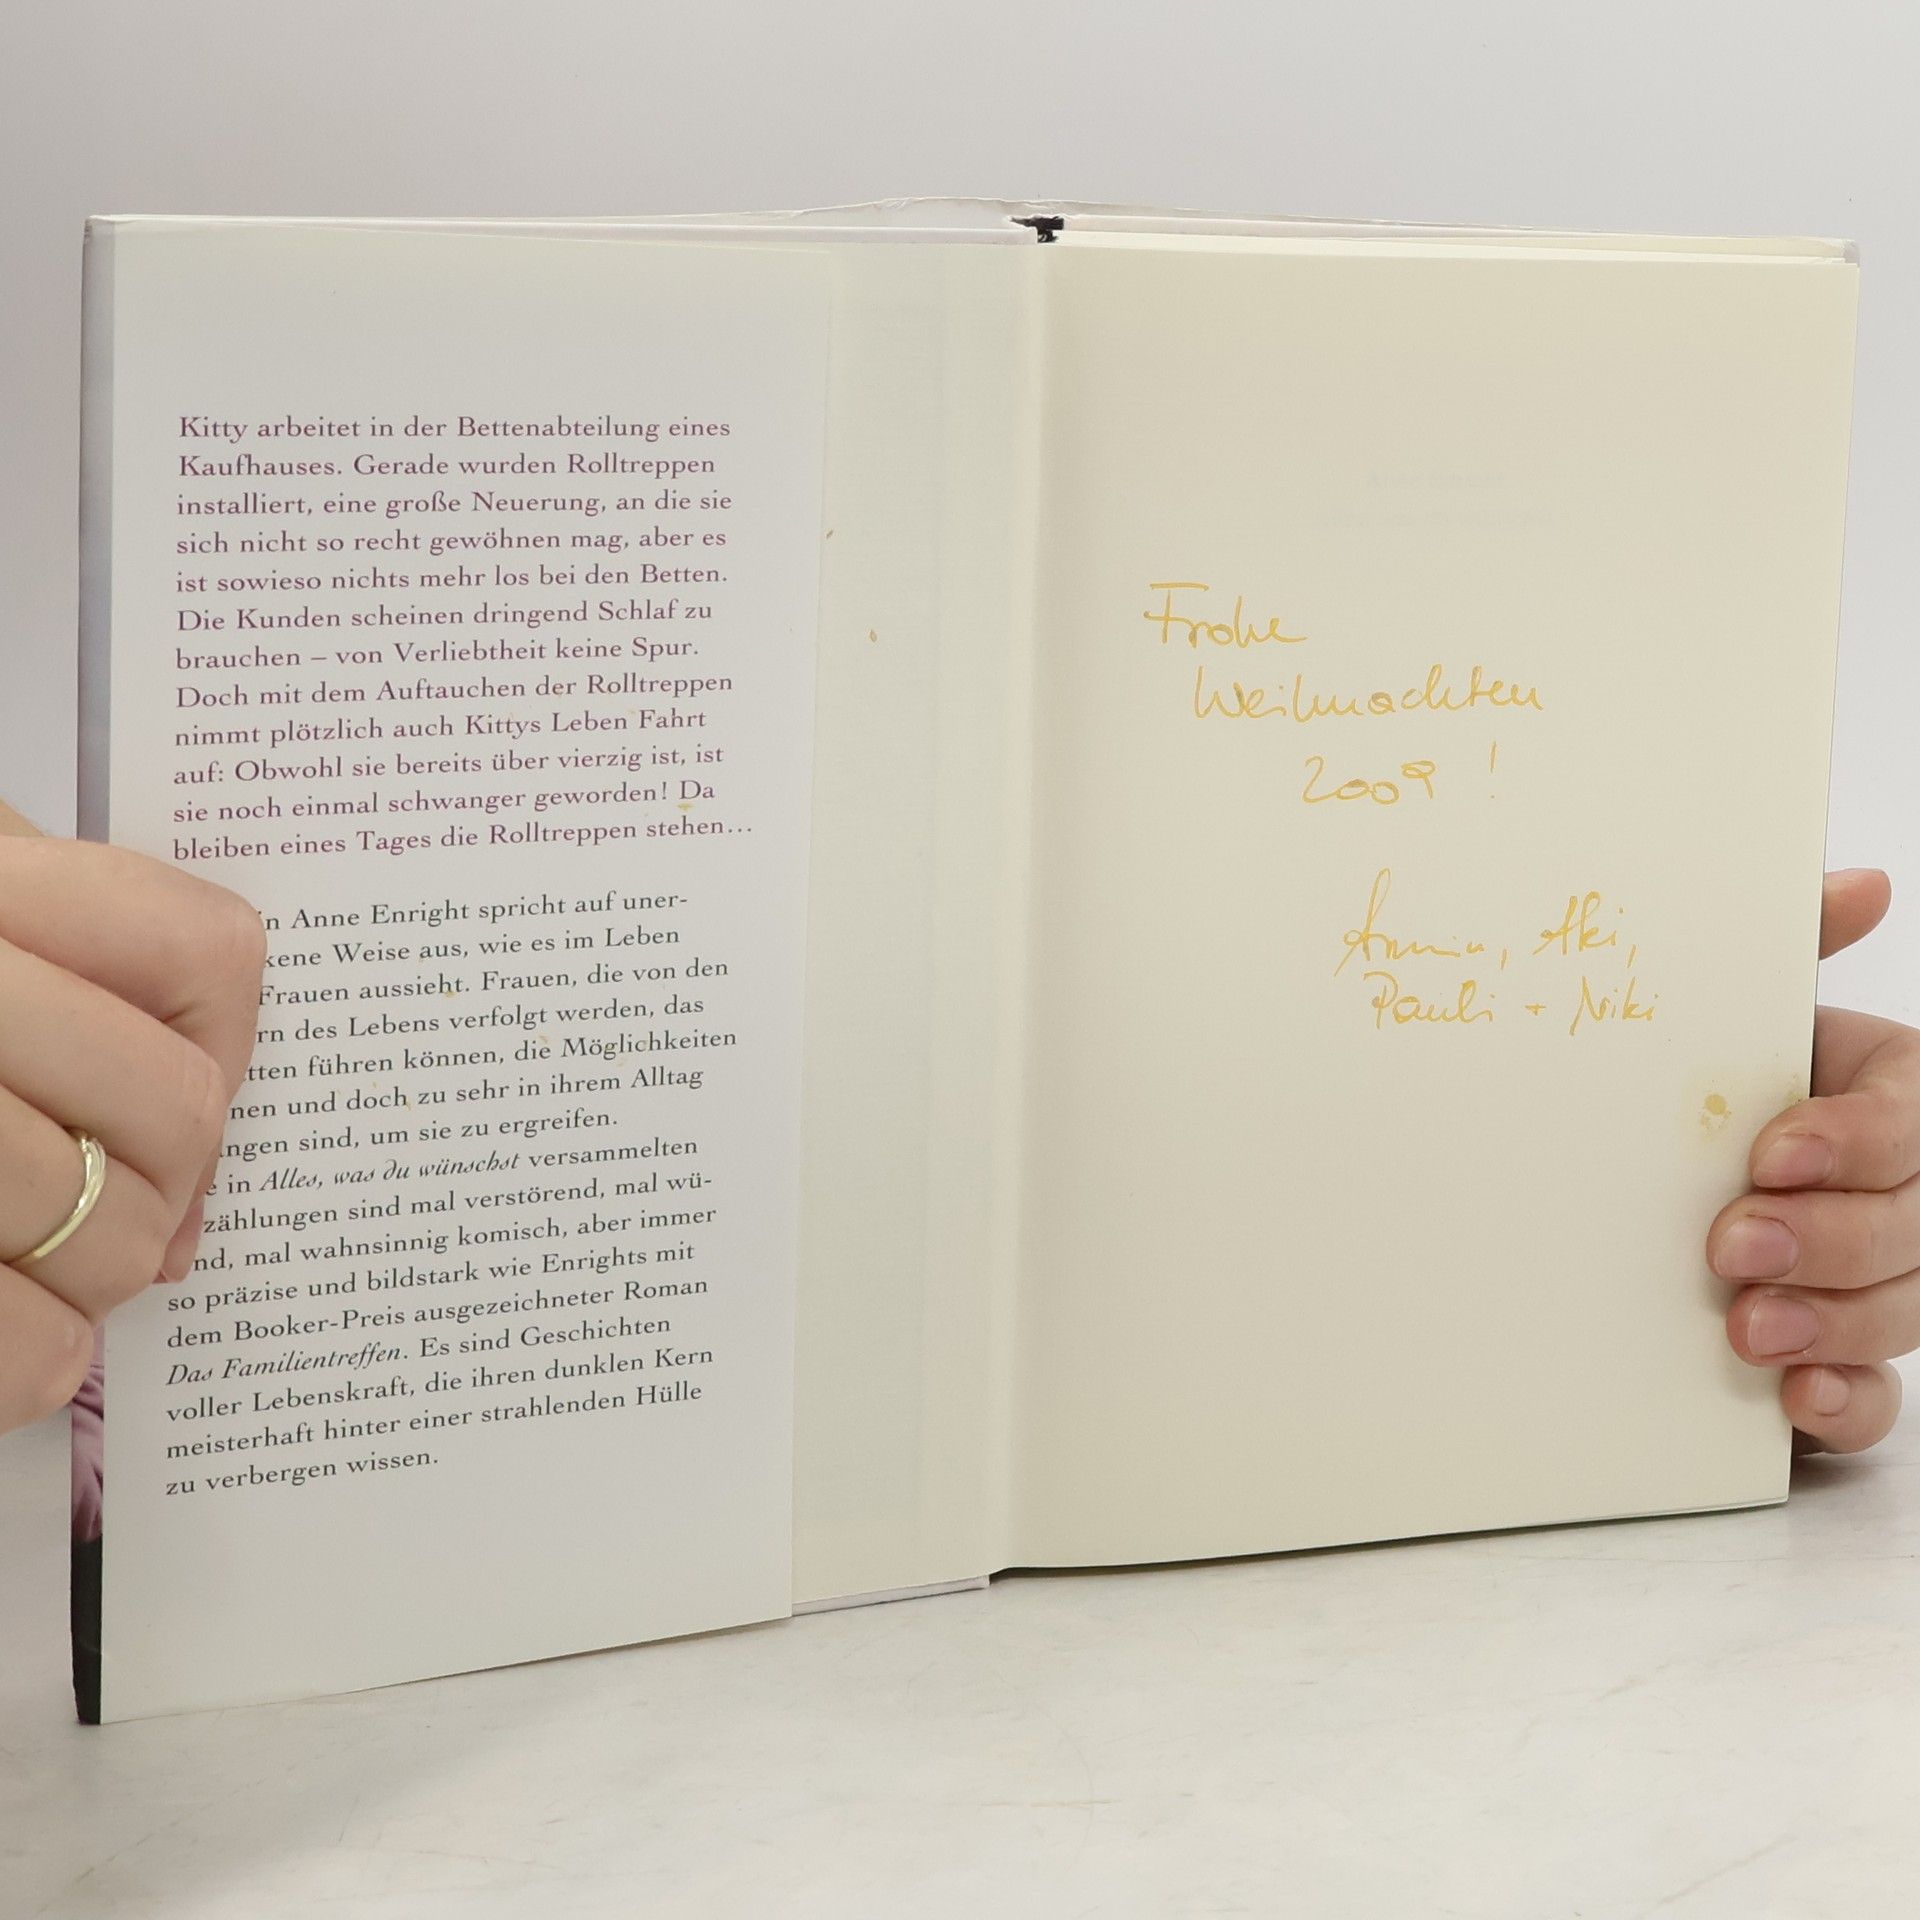 Kitty arbeitet in der Bettenabteilung eines
Kaufhauses. Gerade wurden Rolltreppen
installiert, eine große Neuerung, an die sie
sich nicht so recht gewöhnen mag, aber es
ist sowieso nichts mehr los bei den Betten.
Die Kunden scheinen dringend Schlaf zu
brauchen – von Verliebtheit keine Spur.
Doch mit dem Auftauchen der Rolltreppen
nimmt plötzlich auch Kittys Leben Fahrt
auf: Obwohl sie bereits über vierzig ist, ist
sie noch einmal schwanger geworden! Da
bleiben eines Tages die Rolltreppen stehen…
in Anne Enright spricht auf uner-
kene Weise aus, wie es im Leben
Frauen aussieht. Frauen, die von den
rn des Lebens verfolgt werden, das
tten führen können, die Möglichkeiten
nen und doch zu sehr in ihrem Alltag
ngen sind, um sie zu ergreifen.
e in Alles, was du wünschst versammelten
zählungen sind mal verstörend, mal wü-
nd, mal wahnsinnig komisch, aber immer
so präzise und bildstark wie Enrights mit
dem Booker-Preis ausgezeichneter Roman
Das Familientreffen. Es sind Geschichten
voller Lebenskraft, die ihren dunklen Kern
meisterhaft hinter einer strahlenden Hülle
zu verbergen wissen.
Frohe
Weihnachten
2009 !
Armin, Aki,
Pauli + Niki